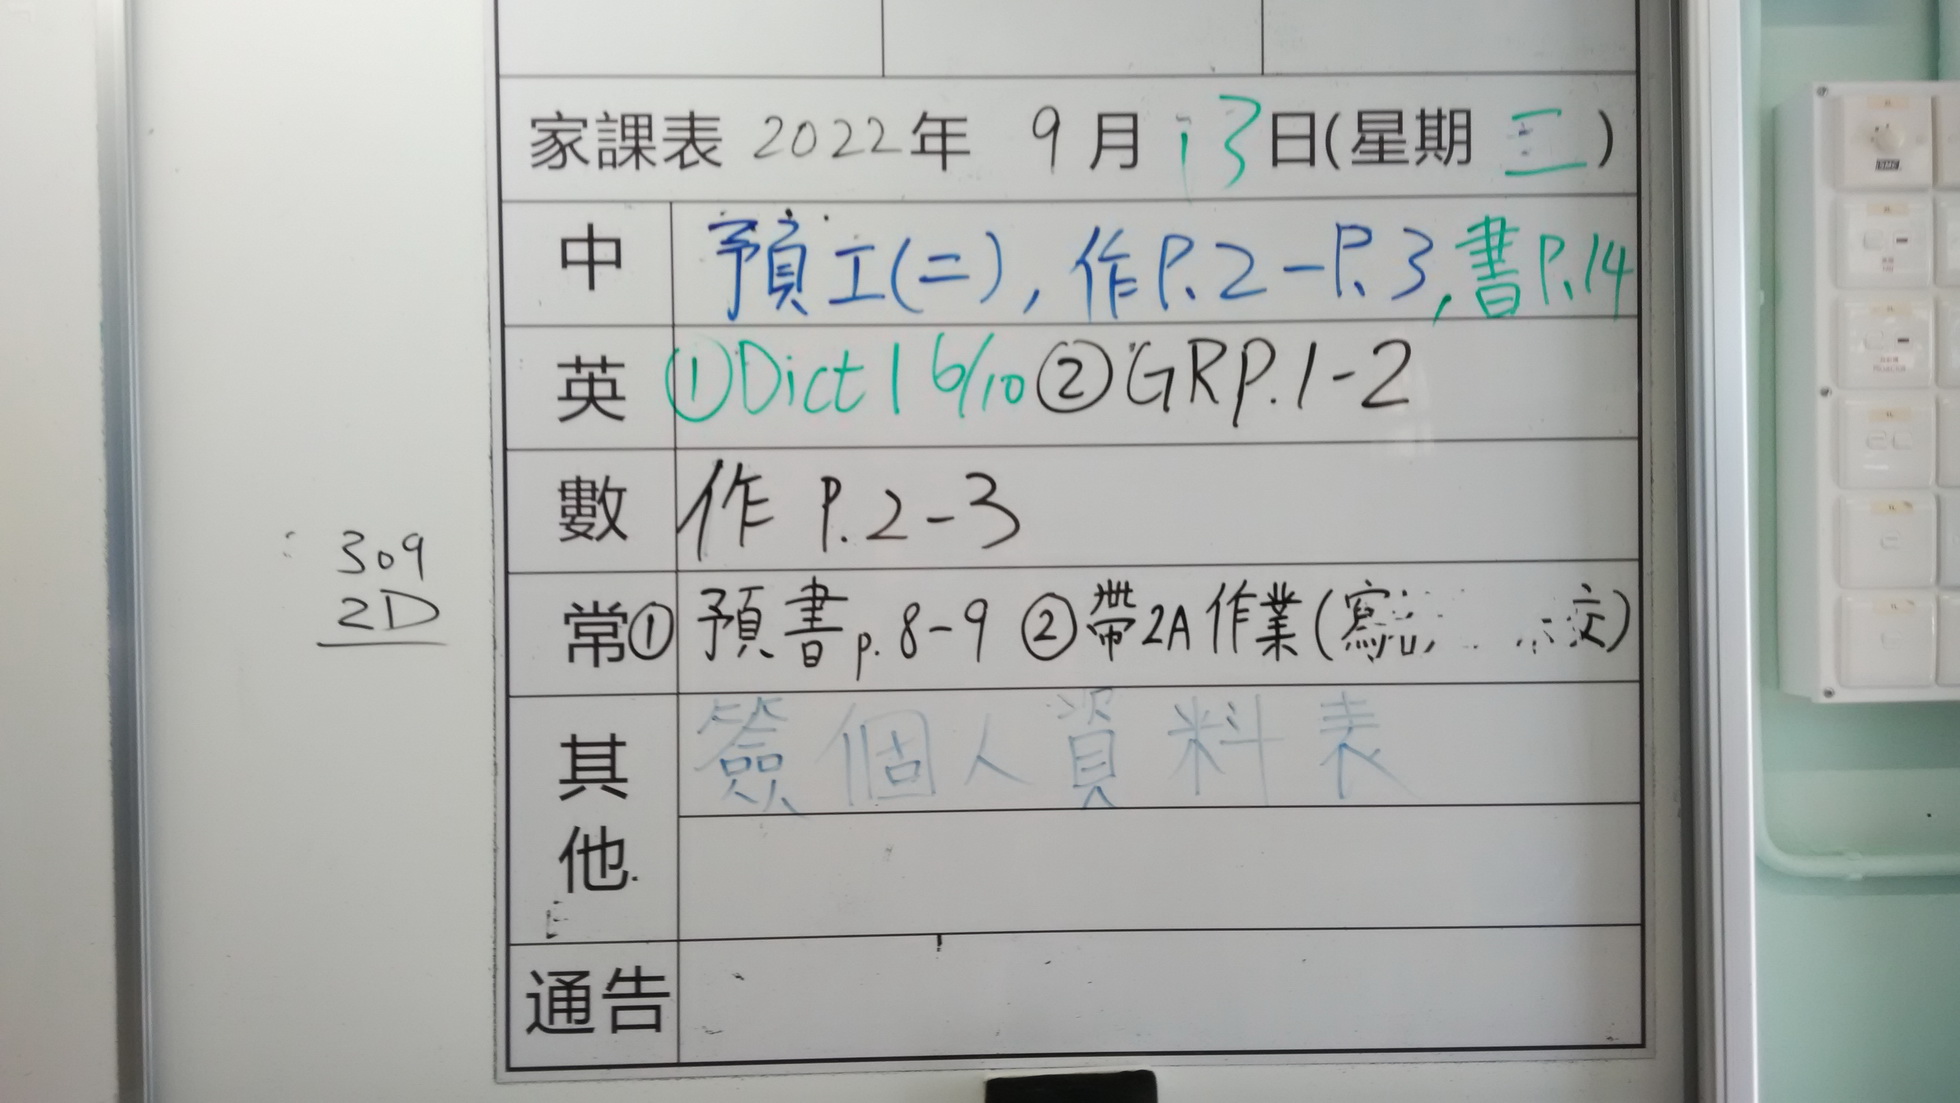 家課表 2022年 9月13日(星期二)
中 預工(二), 作P.2-P.3, 書P.14
英 ①Dict 1 6/10 ②GR P.1-2
數 作 P.2-3
常 ① 預書p.8-9 ②帶2A作業(寫 交)
其他 簽個人資料表
通告
309
2D